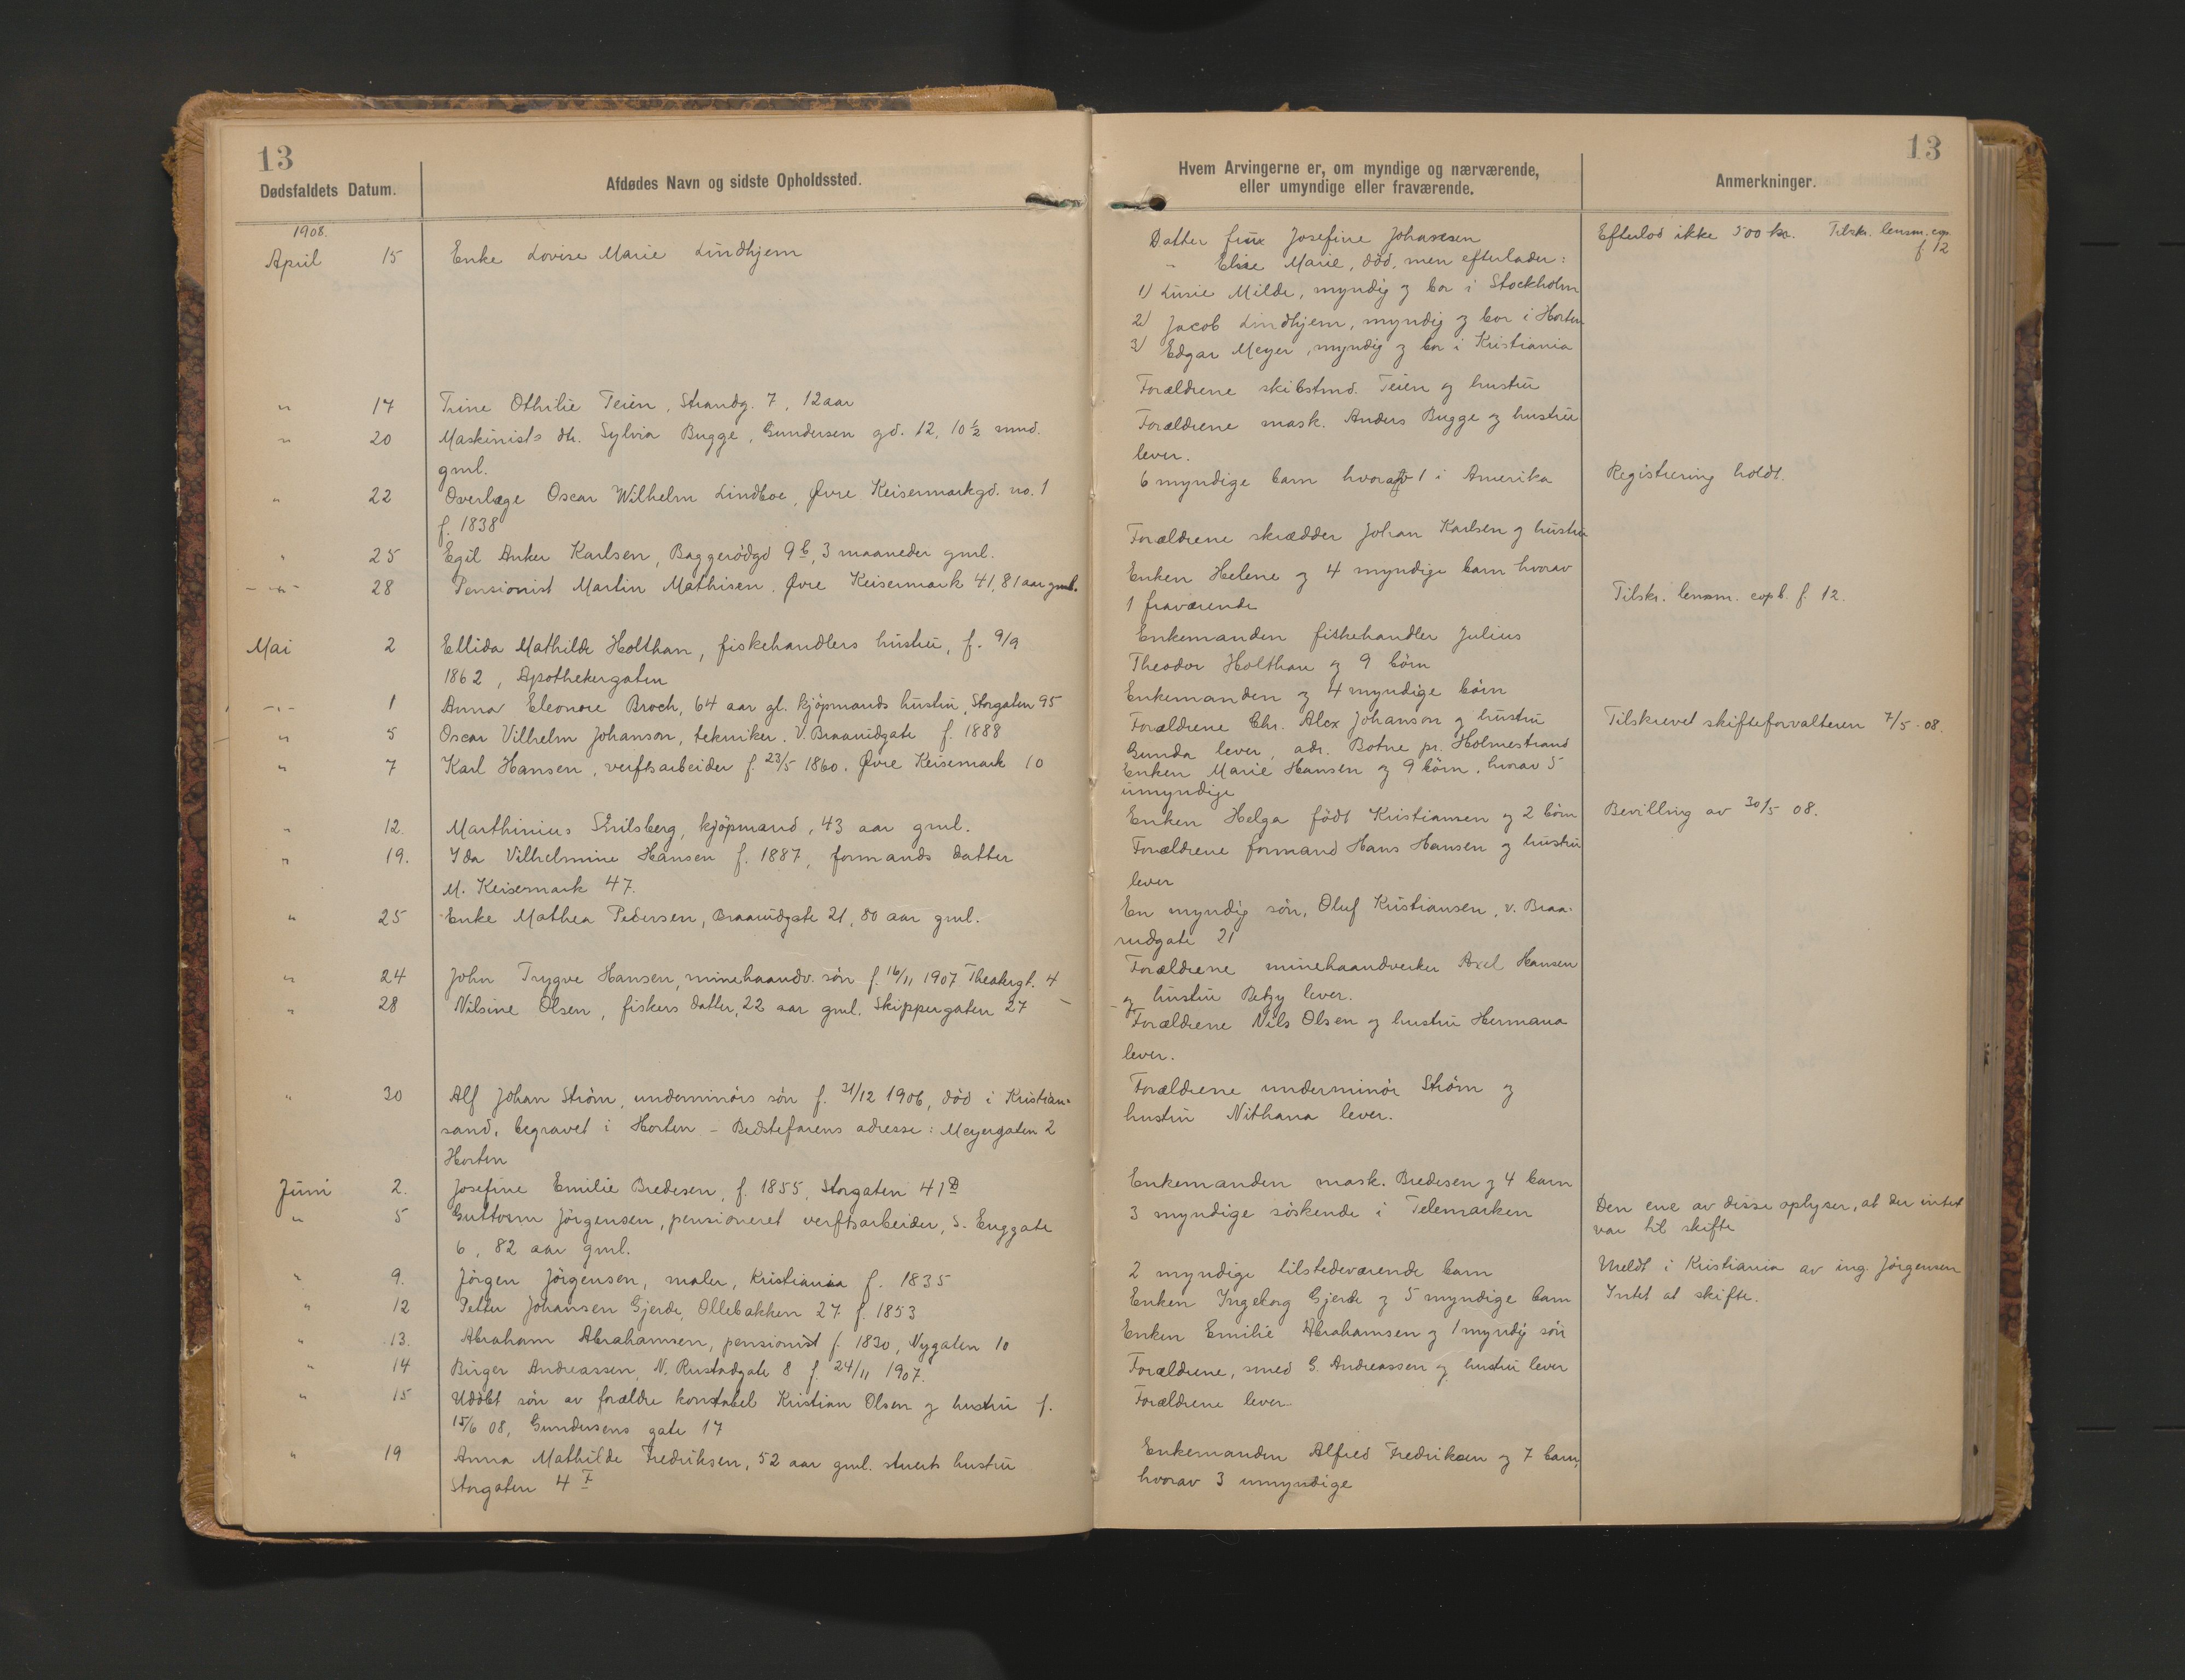 13
Dødsfaldets Datum.
Afdødes Navn og sidste Opholdssted.
1908.
April 15 Enke Lovise Marie Lindhjem
" 17 Trine Othilie Teien, Strandg. 7, 12 aar
" 20 Maskinists dtr. Sylvia Bugge, Gundersen gd. 12, 10 ½ mnd.
gml.
" 22 Overlæge Oscar Wilhelm Lindboe, Øvre Keisermarkgd. no. 1
f. 1838
" 25 Egil Anker Karlsen, Baggerødgd 9 b, 3 maaneder gml.
-"- 28 Pensionist Martin Mathisen. Øvre Keisermark 41, 81 aar gml.
Mai 2 Ellida Mathilde Holthan, fiskehandlers hustru, f. 9/9
1862, Apothekergaten
-"- 1 Anna Eleonore Broch, 64 aar gl. kjöpmands hustru, Storgaten 95
" 5 Oscar Vilhelm Johanson, tekniker. V. Braarudgate f. 1888
" 7 Karl Hansen, verftsarbeider f. 23/5 1860. Øvre Keisemark 10
" 12. Marthinius, kjöpmand, 43 aar gml.
" 19. Ida Vilhelmine Hansen f. 1887, formands datter
M. Keisemark 47.
" 25 Enke Mathea Pedersen, Braarudgate 21, 80 aar gml.
" 24 John Trygve Hansen, minehaandv. sön f. 16/11 1907 Theatergt. 4
" 28 Nilsine Olsen, fiskers datter, 22 aar gml. Skippergaten 27 -
" 30 Alf Johan Ström, underminörs sön f. 31/12 1906, död i Kristian-
sand, begravet i Horten - Bedstefarens adresse: Meyergaten 2
Horten
Juni 2. Josefine Emilie Bredesen, f. 1855, Storgaten 41 D
" 5 Guttorm Jörgensen, pensioneret verftsarbeider, S. Enggate
6, 82 aar gml.
" 9. Jörgen Jörgensen, maler, Kristiania f. 1835
" 12 Petter Johansen Gjerde, Ollebakken 27 f. 1853
" 13. Abraham Abrahamsen, pensionist f. 1830, Nygaten 10
" 14 Birger Andreassen, N. Rustadgate 8 f. 24/11 1907.
" 15 Udöbt sön av forældre konstabel Kristian Olsen og hustru f.
15/6 08, Gundersens gate 17
" 19 Anna Mathilde Fredriksen, 52 aar gml. stuerts hustru
Storgaten 4 F
13
Hvem Arvingerne er, om myndige og nærværende,
eller umyndige eller fraværende.
Anmerkninger.
Datter frux Josefine Johansen
" Elise Marie, död, men efterlader:
1) Lusie Milde, myndig og bor i Stockholm
2) Jacob Lindhjem, myndig og bor i Horten
3) Edgar Meyer, myndig og bor i Kristiania
Forældrene skibstmd. Teien og hustru
Forældrene mask. Anders Bugge og hustru
lever.
6 myndige barn hvorav 1 i Amerika
Forældrene skrædder Johan Karlsen og hustru
Enken Helene og 4 myndige barn hvorav
1 fraværende
Enkemanden fiskehandler Julius
Theodor Holthan og 9 börn
Enkemanden og 4 myndige börn
Forældrene Chr. Alex Johanson og hustru
Gunda lever, adr. Botne pr. Holmestrand
Enken Marie Hansen og 9 börn, hvorav 5
umyndige
Enken Helga födt Kristiansen og 2 börn
Forældrene formand Hans Hansen og hustru
lever
En myndig sön, Oluf Kristiansen, v. Braa-
rudgate 21
Forældrene minehaandverker Axel Hansen
og hustru Betzy lever.
Forældrene Nils Olsen og hustru Hermana
lever.
Forældrene underminör Ström og
hustru Nithana lever.
Enkemanden mask. Bredesen og 4 barn
3 myndige söskende i Telemarken
2 myndige tilstedeværende barn
Enken Ingeborg Gjerde og 5 myndige barn
Enken Emilie Abrahamsen og 1 myndig sön
Forældrene, smed G. Andreassen og hustru lever
Forældrene lever
Enkemanden Alfred Fredriksen og 7 barn,
hvorav 3 umyndige
Efterlod ikke 500 kr. Tilskr. lensm. cop.
f 12
Registrering holdt.
Tilskr. lensm. copb. f. 12.
Tilskrevet skifteforvalteren 7/5 - 08.
Bevilling av 30/5 08.
Den ene av disse oplyser, at der intet
var til skifte
Meldt i Kristiania av ing. Jörgensen
Intet at skifte.